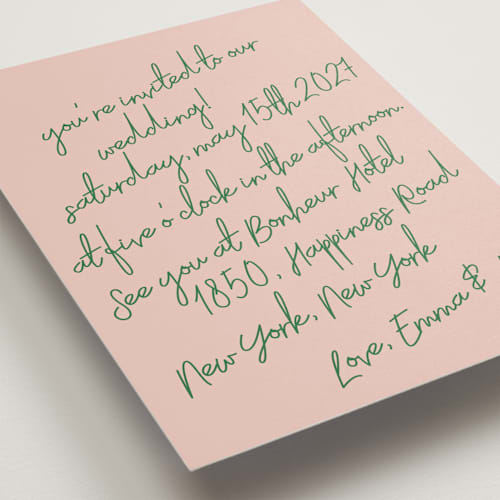 you're invited to our
wedding!
saturday, may 15th 2027
at five o'clock in the afternoon.
See you at Bonheur Hotel
1850, Happiness Road
New York, New York
Love, Emma &